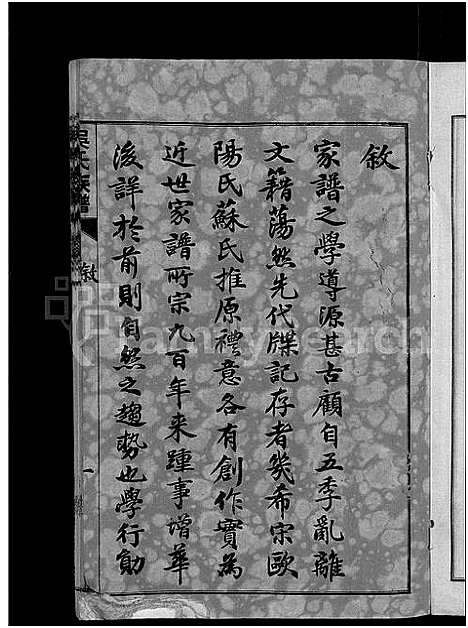 敘
家譜之學導源甚古顧自五季亂離
文籍蕩然先代牒記存者幾希宋歐
陽氏蘇氏推原禮意各有創作實為
近世家譜所宗九百年来踵事增華
後詳於前則自然之趨勢也學行勛
吳氏族譜
敘
一
FamilySearch